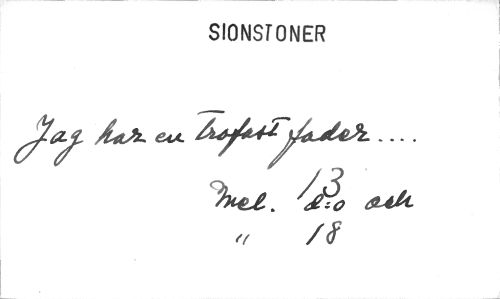 SIONSTONER
Jag har en trofast fader....
13
Mel. d:o och
" 18